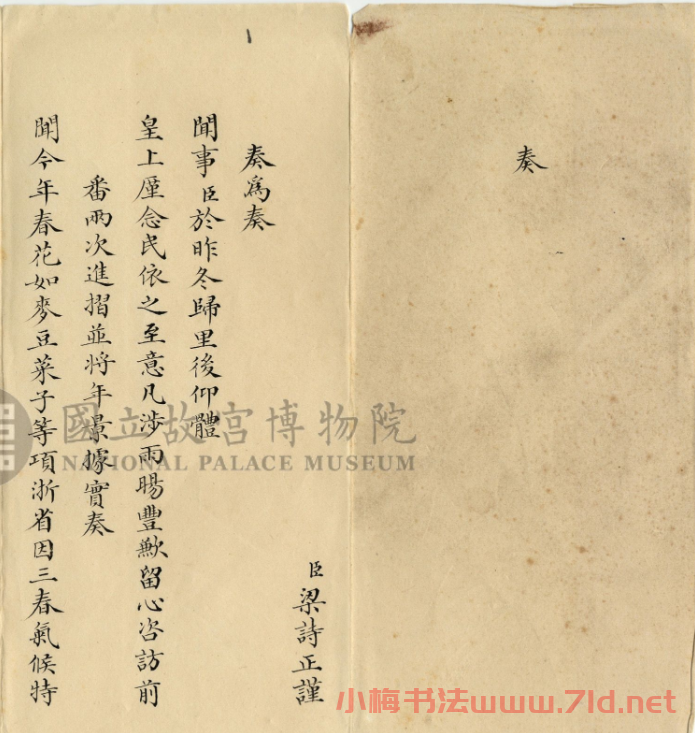 奏
臣梁詩正謹
奏爲奏
聞事臣於昨冬歸里後仰體
皇上厪念民依之至意凡涉雨暘豐歉留心咨訪前
番兩次進摺並將年景據實奏
聞今年春花如麥豆菜子等項浙省因三春氣候特
國立故宮博物院
NATIONAL PALACE MUSEUM
小梅书法www.7ld.net